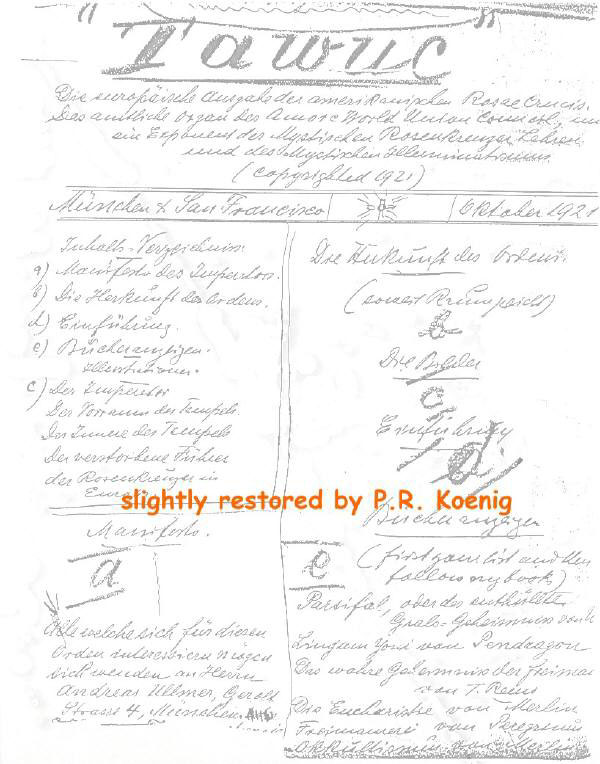 "Tawuc"
Die europäische Ausgabe der amerikanischen Rosae Crucis.
Das amtliche Organ des Amorc World Union Council, und
ein Exponent der Mystischen Rosenkreuzer Lehren
und des Mystischen Illuminatismus.
(copyrighted 1921)
München & San Francisco
Oktober 1921
Inhalts-Verzeichniss.
a) Manifesto des Imperators.
b) Die Herkunft des Ordens.
d) Einführung.
e) Bücheranzeigen.
Illustrationen.
c) Der Imperator
Der Vorraum des Tempels.
Das Innere des Tempels
Der verstorbene Führer
der Rosenkreuzer in
Manifesto.
a
Alle welche sich für diesen
Orden interessieren mögen
sich wenden an Herrn
Andreas Ullmer, Gerolt
Strasse 4, München.
Die Herkunft des Ordens.
(soweit Raum reicht)
b
Die Bilder
c
Einführung
d
slightly restored by P.R. Koenig
Bücheranzeigen
e
(first your list and then
follow my books)
Parsifal, oder das enthüllte
Grals-Geheimniss von
Lingam Yoni von Pendragon
Das wahre Geheimniss der Freimau
von T. Reuss
Die Eucharistie von Merlin
Freimaurerei von Peregrinus
Okkultismus von Merlin